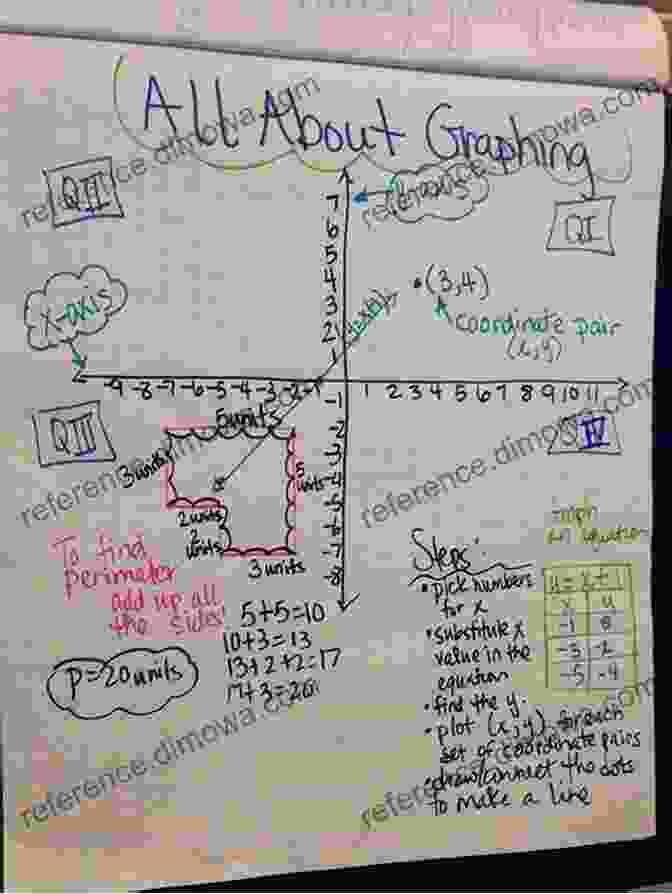 All About Graphing
QII
QI
7
6
5
4
3
2
1
y-axis
(3,4)
coordinate pair
(x,y)
X-axis
-9 -8 -7 -6 -5 -4 -3 -2 -1 1 2 3 4 5 6 7 8 9 10 11
-1
-2
-3
-4
-5
-6
-7
-8
QIII
IV
5 units
3 units
5
units
2 units
2
units
3 units
To find
perimeter
add up all
the sides
5+5=10
10+3=13
13+2+2=17
17+3=20
P=20 units
Graph
an equation
Steps:
• pick numbers
for x
• substitute x
value in the
equation
• find the y.
• plot (x,y) for each
set of coordinate pairs
• draw/connect the dots
to make a line
y=x+1
x y
-1 0
-3 -2
-5 -4
reference.dimowa.com
reference.dimowa.com
reference.dimowa.com
reference.dimowa.com
reference.dimowa.com
reference.dimowa.com